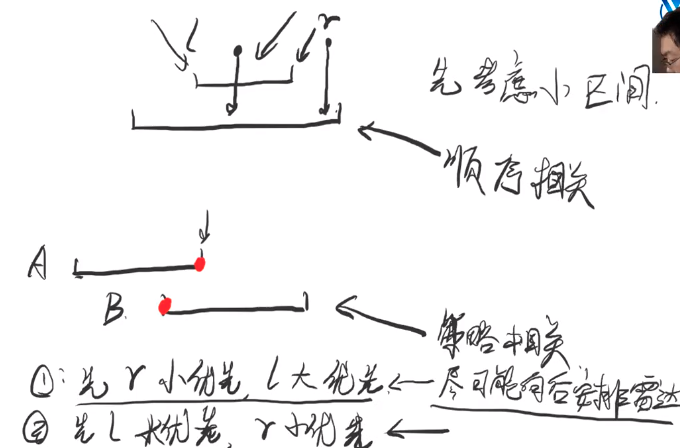 l r
先考虑小区间.
顺序相关
A
B.
策略相关
①: 先 r 小优先, l 大优先 ← 尽可能向后安排雷达
② 先 l 大优先, r 小优先 ←